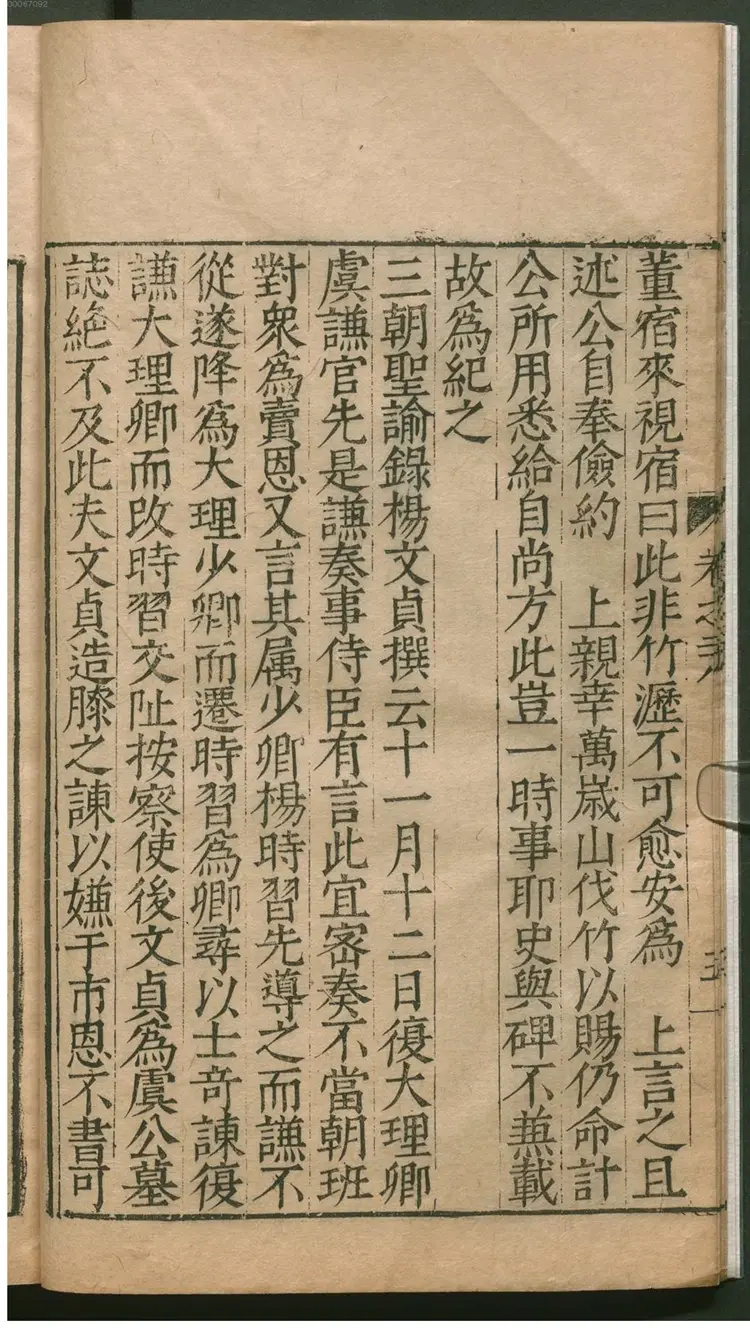 00067092
董宿來視宿曰此非竹瀝不可愈安爲　上言之且
述公自奉儉約　上親幸萬歳山伐竹以賜仍命計
公所用悉給自尚方此豈一時事耶史與碑不兼載
故爲紀之
三朝聖諭錄楊文貞撰云十一月十二日復大理卿
虞謙官先是謙奏事侍臣有言此宜密奏不當朝班
對衆爲賣恩又言其属少卿楊時習先導之而謙不
從遂降爲大理少卿而遷時習爲卿尋以士竒諌復
謙大理卿而改時習交阯按察使後文貞爲虞公墓
誌絶不及此夫文貞造膝之諌以嫌于市恩不書可